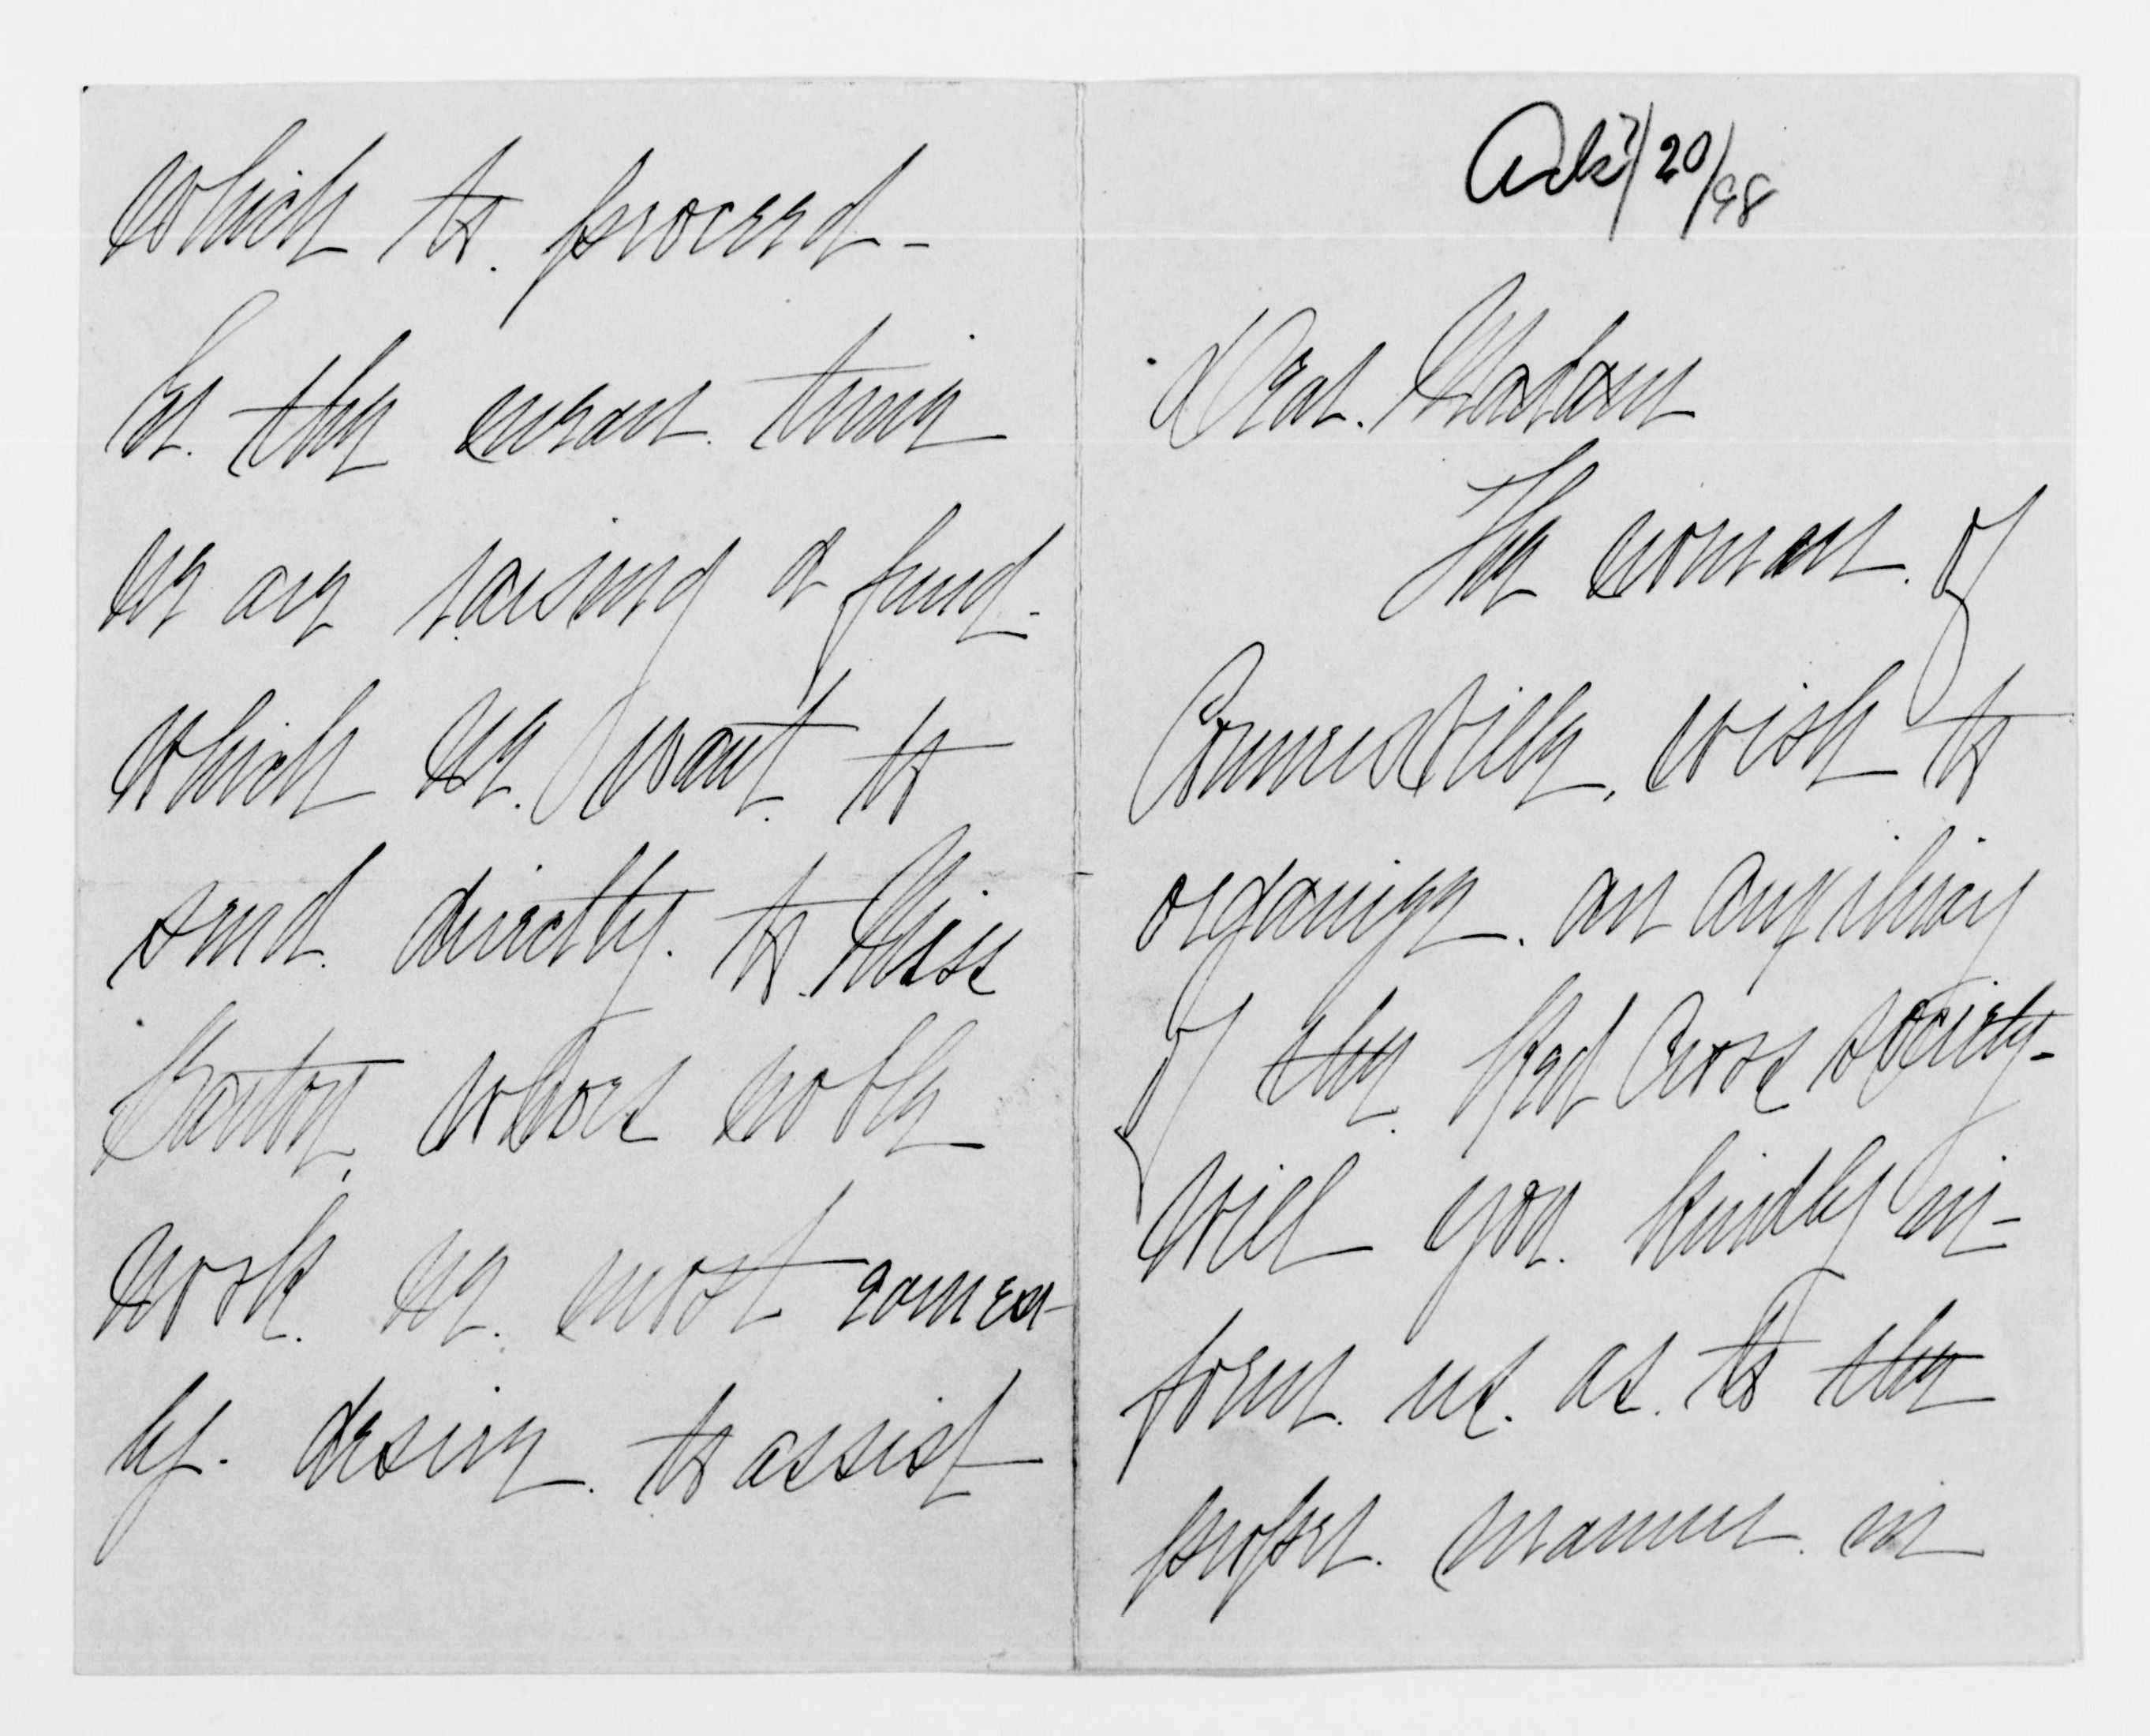 Ack 7/20/98
Dear Madam
The women of
Connersville, wish to
organize an auxiliary
of the Red Cross society-
Will you kindly in-
form us as to the
proper manner in
which to proceed -
In the mean time
we are raising a fund
which we want to
send directly to Miss
Barton, whose noble
work we most earnest-
ly desire to assist